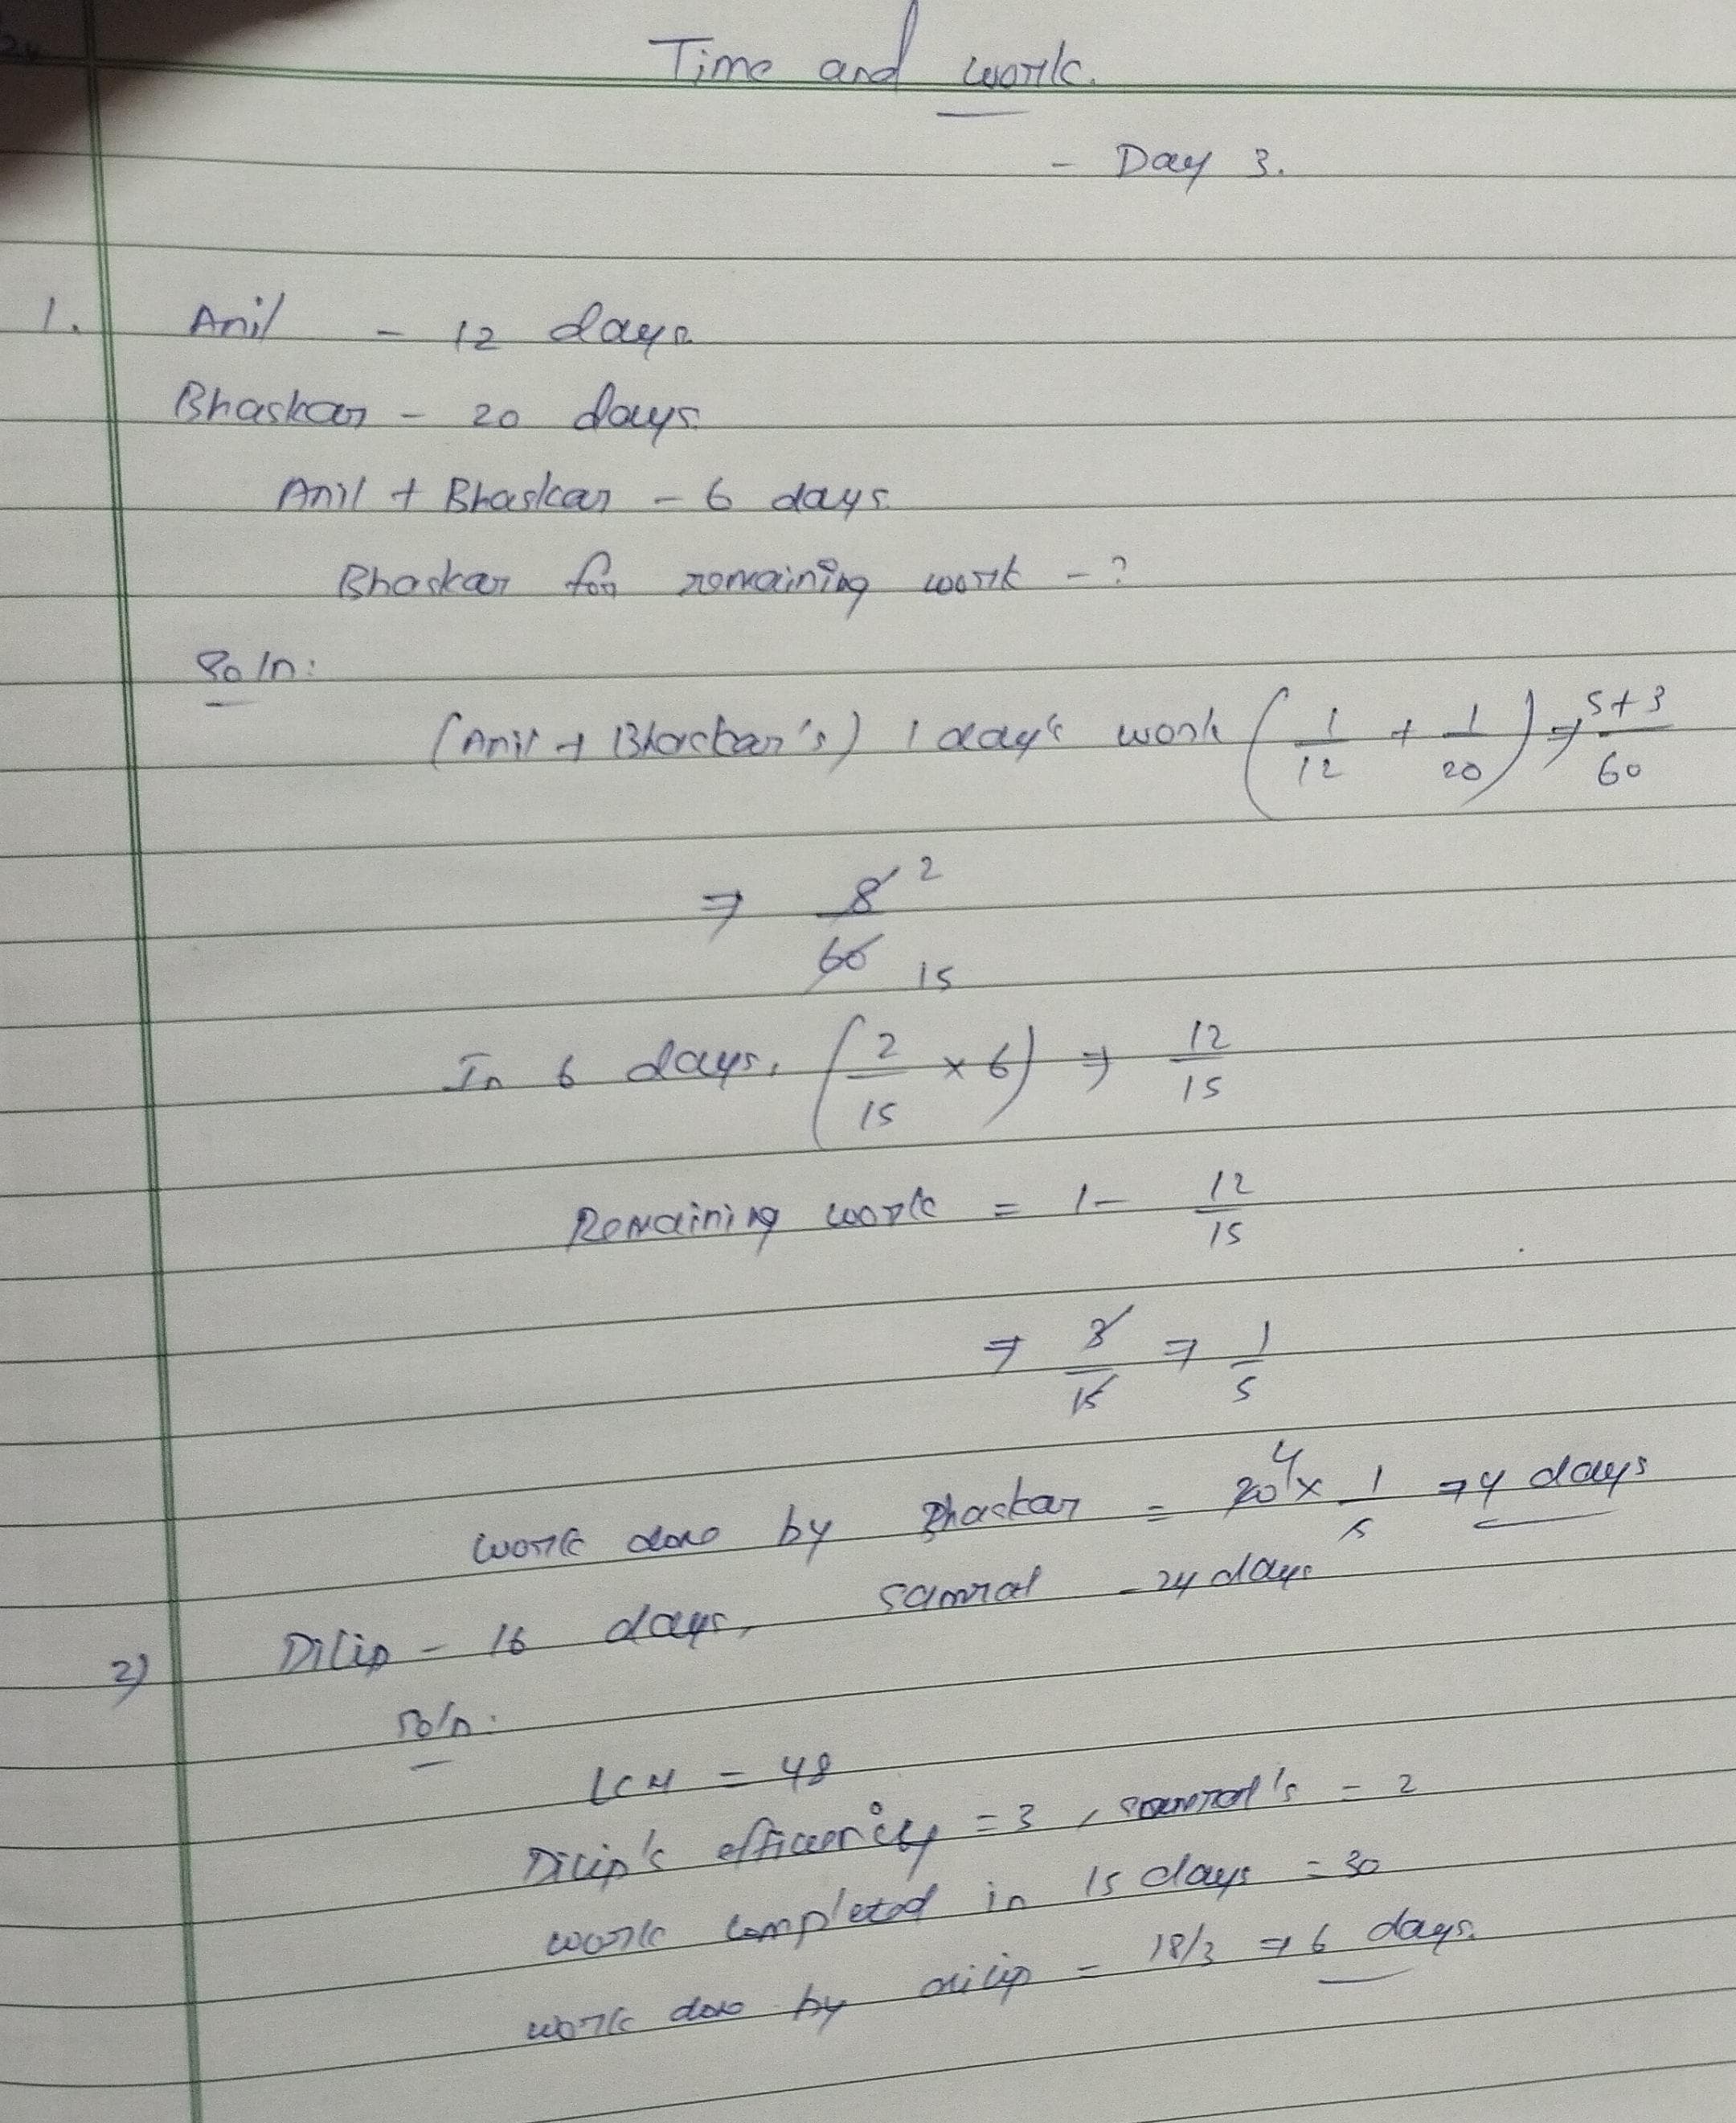 Time and work.
- Day 3.
1. Anil - 12 days
Bhaskar - 20 days
Anil + Bhaskar - 6 days.
Bhaskar for remaining work - ?
Soln:
(Anil + Bhaskar's) 1 day's work (1/12 + 1/20) ⇒ 5+3/60
⇒ 8/60 2/15
In 6 days, (2/15 × 6) ⇒ 12/15
Remaining work = 1 - 12/15
⇒ 3/15 ⇒ 1/5
work done by Bhaskar = 20 4 × 1/5 ⇒ 4 days
2) Dilip - 16 days, samral - 24 days
Soln:
LCM = 48
Dilip's efficiency = 3, samral's = 2
work completed in 15 days = 30
work done by dilip = 18/3 ⇒ 6 days.